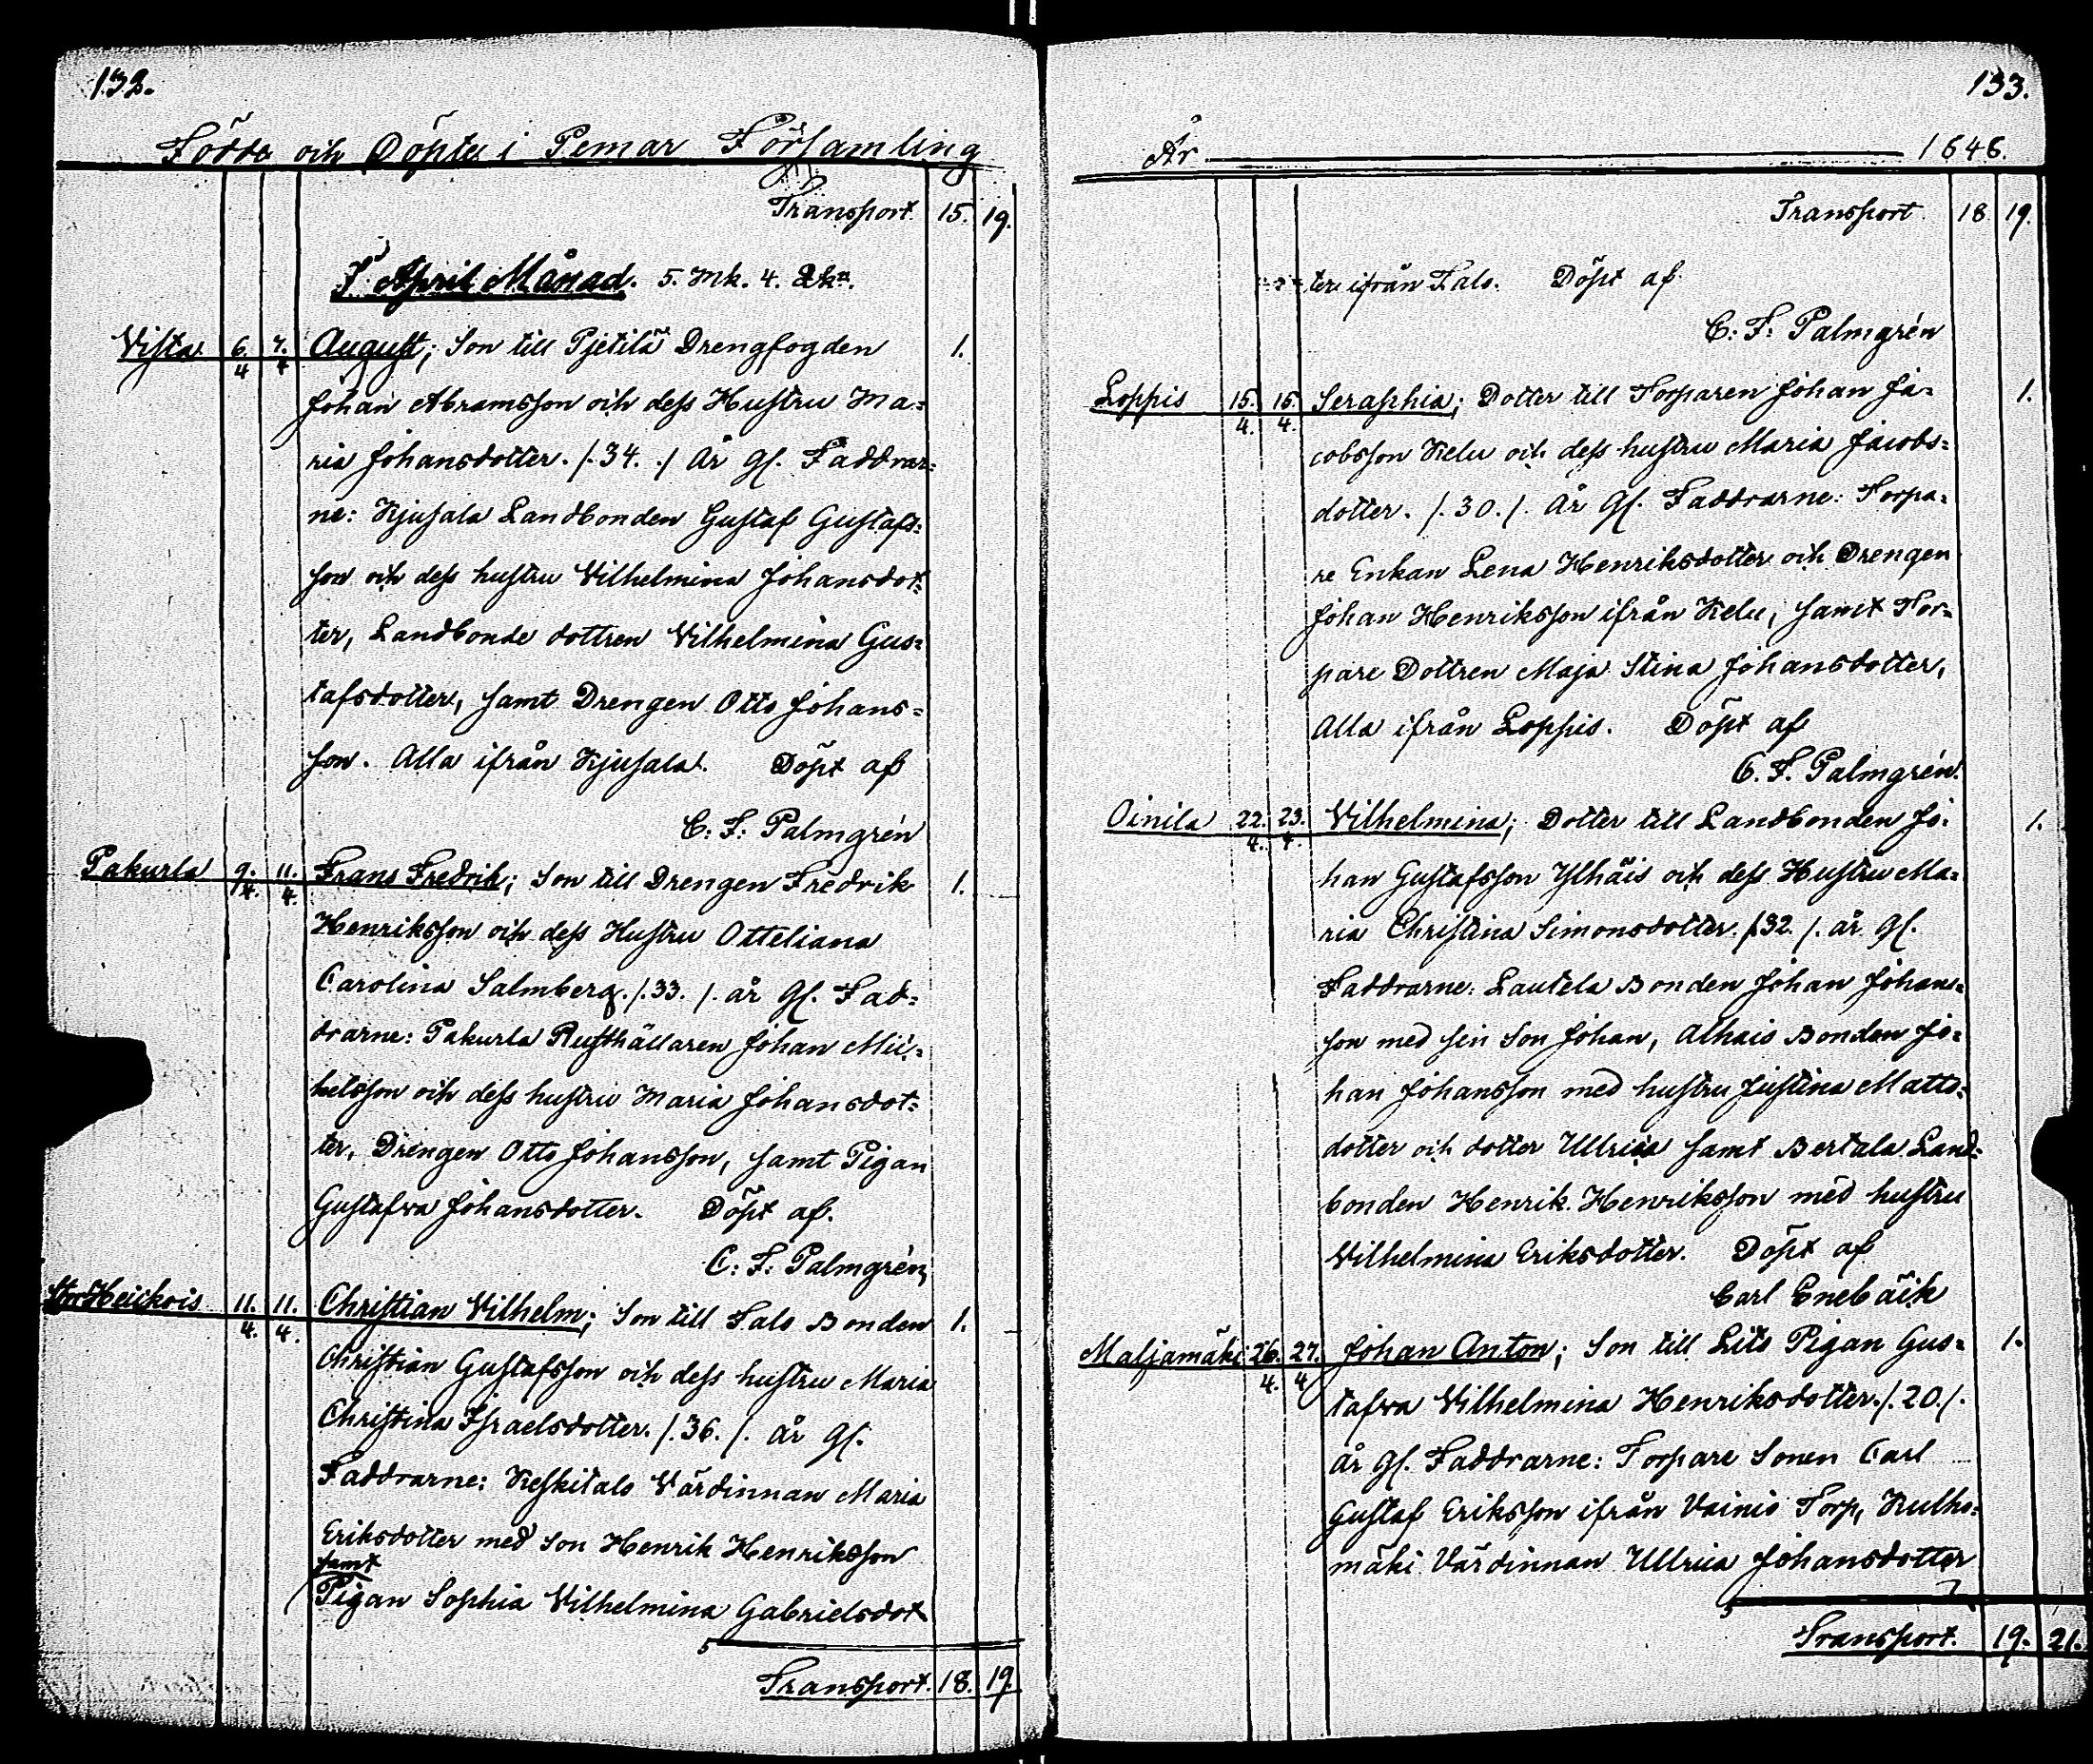 132.
Födde och Döpte i Pemar Församling
Transport 15. 19.
I April Månad. 5. Mk. 4. Qk.
Vista 6/4 7/4 August; Son till Pjetilä Drengfogden 1.
Johan Abramsson och dess Hustru Ma=
ria Johansdotter. /.34. ./ År gl. Faddrar=
ne: Kjusala Landbonden Gustaf Gustafs=
son och dess hustru Vilhelmina Johansdot=
ter, Landbonde dottren Vilhelmina Gus=
tafsdotter, samt Drengen Otto Johans=
son. Alla ifrån Kjusala. Döpt af
C: F: Palmgrén
Pakurla 9/4. 11/4. Frans Fredrik; Son till Drengen Fredrik 1.
Henriksson och dess Hustru Otteliana
Carolina Salmberg. /.33. /. år gl. Fad=
drarne: Pakurla Rusthållaren Johan Mic=
kelsson och dess hustru Maria Johansdot=
ter, Drengen Otto Johansson, samt Pigan
Gustafva Johansdotter. Döpt af.
C: F: Palmgrén,
Heickois 11./4. 11./4. Christian Vilhelm; Son till Talo Bonden 1.
Christian Gustafsson och dess hustru Maria
Christina Israelsdotter. /.36. /. år gl.
Faddrarne: Keskitalo Värdinnan Maria
Eriksdotter med Son Henrik Henriksson
samt
Pigan Sophia Vilhelmina Gabrielsdot
Transport. 18. 19
133.
År 1848.
Transport 18. 19.
ter ifrån Talo. Döpt af
C: F: Palmgrén
Loppis 15./4. 16./4. Seraphia; Dotter till Torparen Johan Ja= 1.
cobsson Kelu och dess hustru Maria Jacobs=
dotter. /.30./. År gl. Faddrarne: Torpa=
re Enkan Lena Henriksdotter och Drengen
Johan Henriksson ifrån Kelu, samt Tor=
pare Dottren Maja Stina Johansdotter,
Alla ifrån Loppis. Döpt af
C. F. Palmgrén.
Oinila 22./4. 23./4. Vilhelmina; Dotter till Landbonden Jo= 1.
han Gustafsson Ylhäis och dess Hustru Ma=
ria Christina Simonsdotter. /.32 /. år gl.
Faddrarne: Lautela Bonden Johan Johans=
son med sin Son Johan, Alhais Bonden Jo=
han Johansson med hustru Justina Matts=
dotter och dotter Ullrica samt Bertala Land=
bonden Henrik Henriksson med hustru
Vilhelmina Eriksdotter. Döpt af
Carl Enebäck
Maljamäki 26./4. 27./4 Johan Anton; Son till Lits Pigan Gus= 1.
tafva Vilhelmina Henriksdotter. /.20./.
år gl. Faddrarne: Torpare Sonen Carl
Gustaf Eriksson ifrån Vainio Torp, Kulho=
mäki Värdinnan Ullrica Johansdotter
Transport. 19. 21.